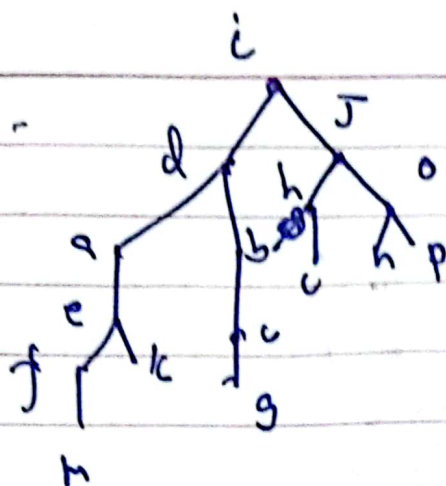 i
J
d
h
o
a
b
u
n
p
e
c
f
k
g
m